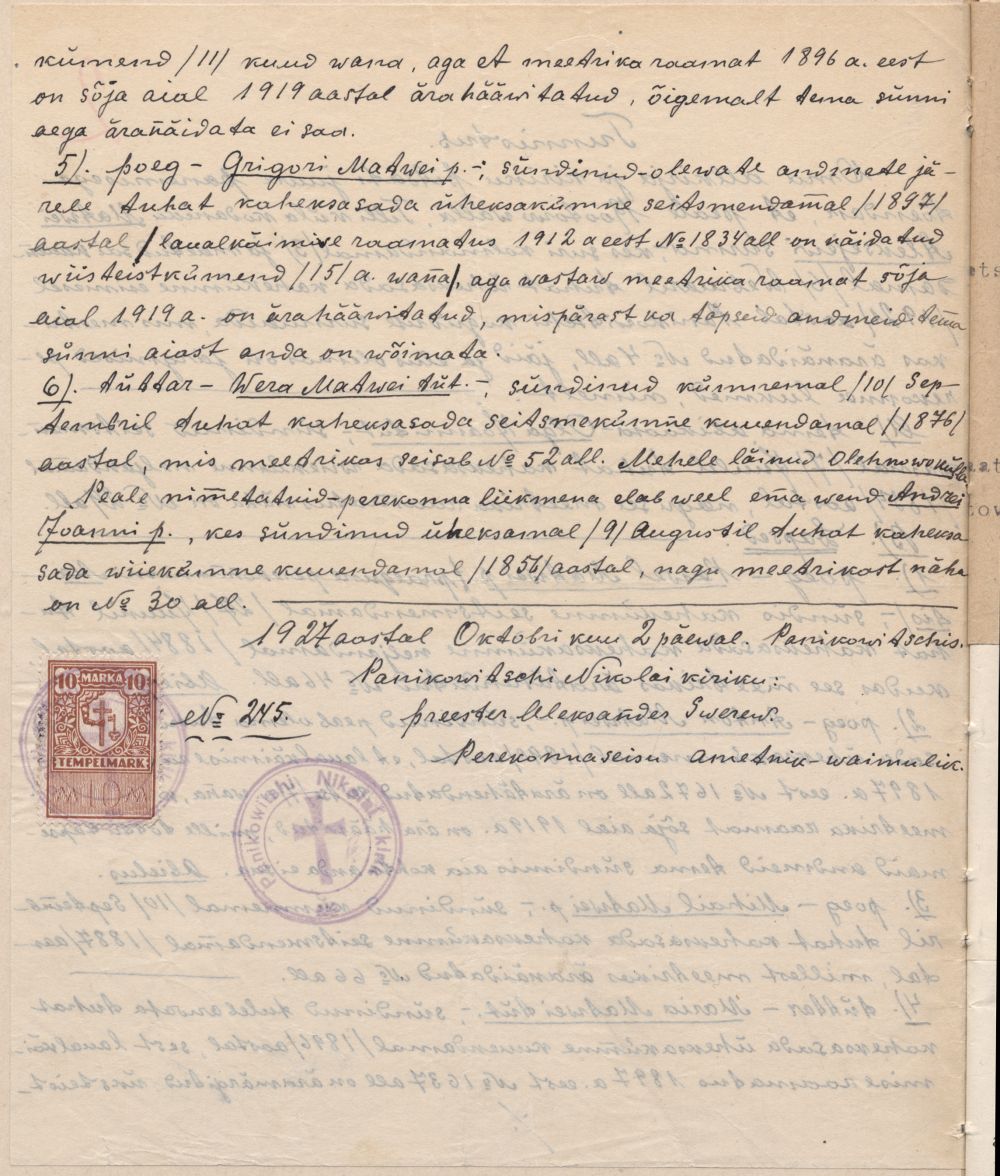 kümend /11/ kuud wana, aga et meetrika raamat 1896 a. eest
on sõja aial 1919 aastal ärahääwitatud, õigemalt tema sünni
aega äranäidata ei saa.
5). poeg – Grigori Matwei p. –; sündinud-olewate andmete jä-
rele tuhat kaheksasada üheksakümne seitsmendam̄al /1897/
aastal /laualkäimise raamatus 1912 a eest № 1834 all on näidatud
wiisteistkümend /15/ a. wan̄a/, aga wastaw meetrika raamat sõja
aial 1919 a. on ärahääwitatud, mispärast ka täpseid andmeid tem̄a
sünni aiast anda on wõimata.
6). tüttar – Wera Matwei tüt. –, sündinud kümnemal /10/ Sep-
tembril tuhat kaheksasada seitsmekümne kuuendamal /1876/
aastal, mis meetrikas seisab № 52 all. Mehele läinud Olehnowo külla
Peale nim̄etatuid-perekonna liikmena elab weel em̄a wend Andrei
Joanni p., kes sündinud üheksamal /9/ Augustil tuhat kaheksa
sada wiiekümne kuuendamal /1856/ aastal, nagu meetrikast näha
on № 30 all.
1927 aastal Oktobri kuu 2 päewal. Panikowitschis.
Panikowitschi Nikolai kiriku:
№ 245. preester Aleksander Swerew.
Perekonnaseisu ametnik-waimulik.
10 MARKA 10
TEMPELMARK
10
Panikowitschi Nikolai kirik
ts
at
tov